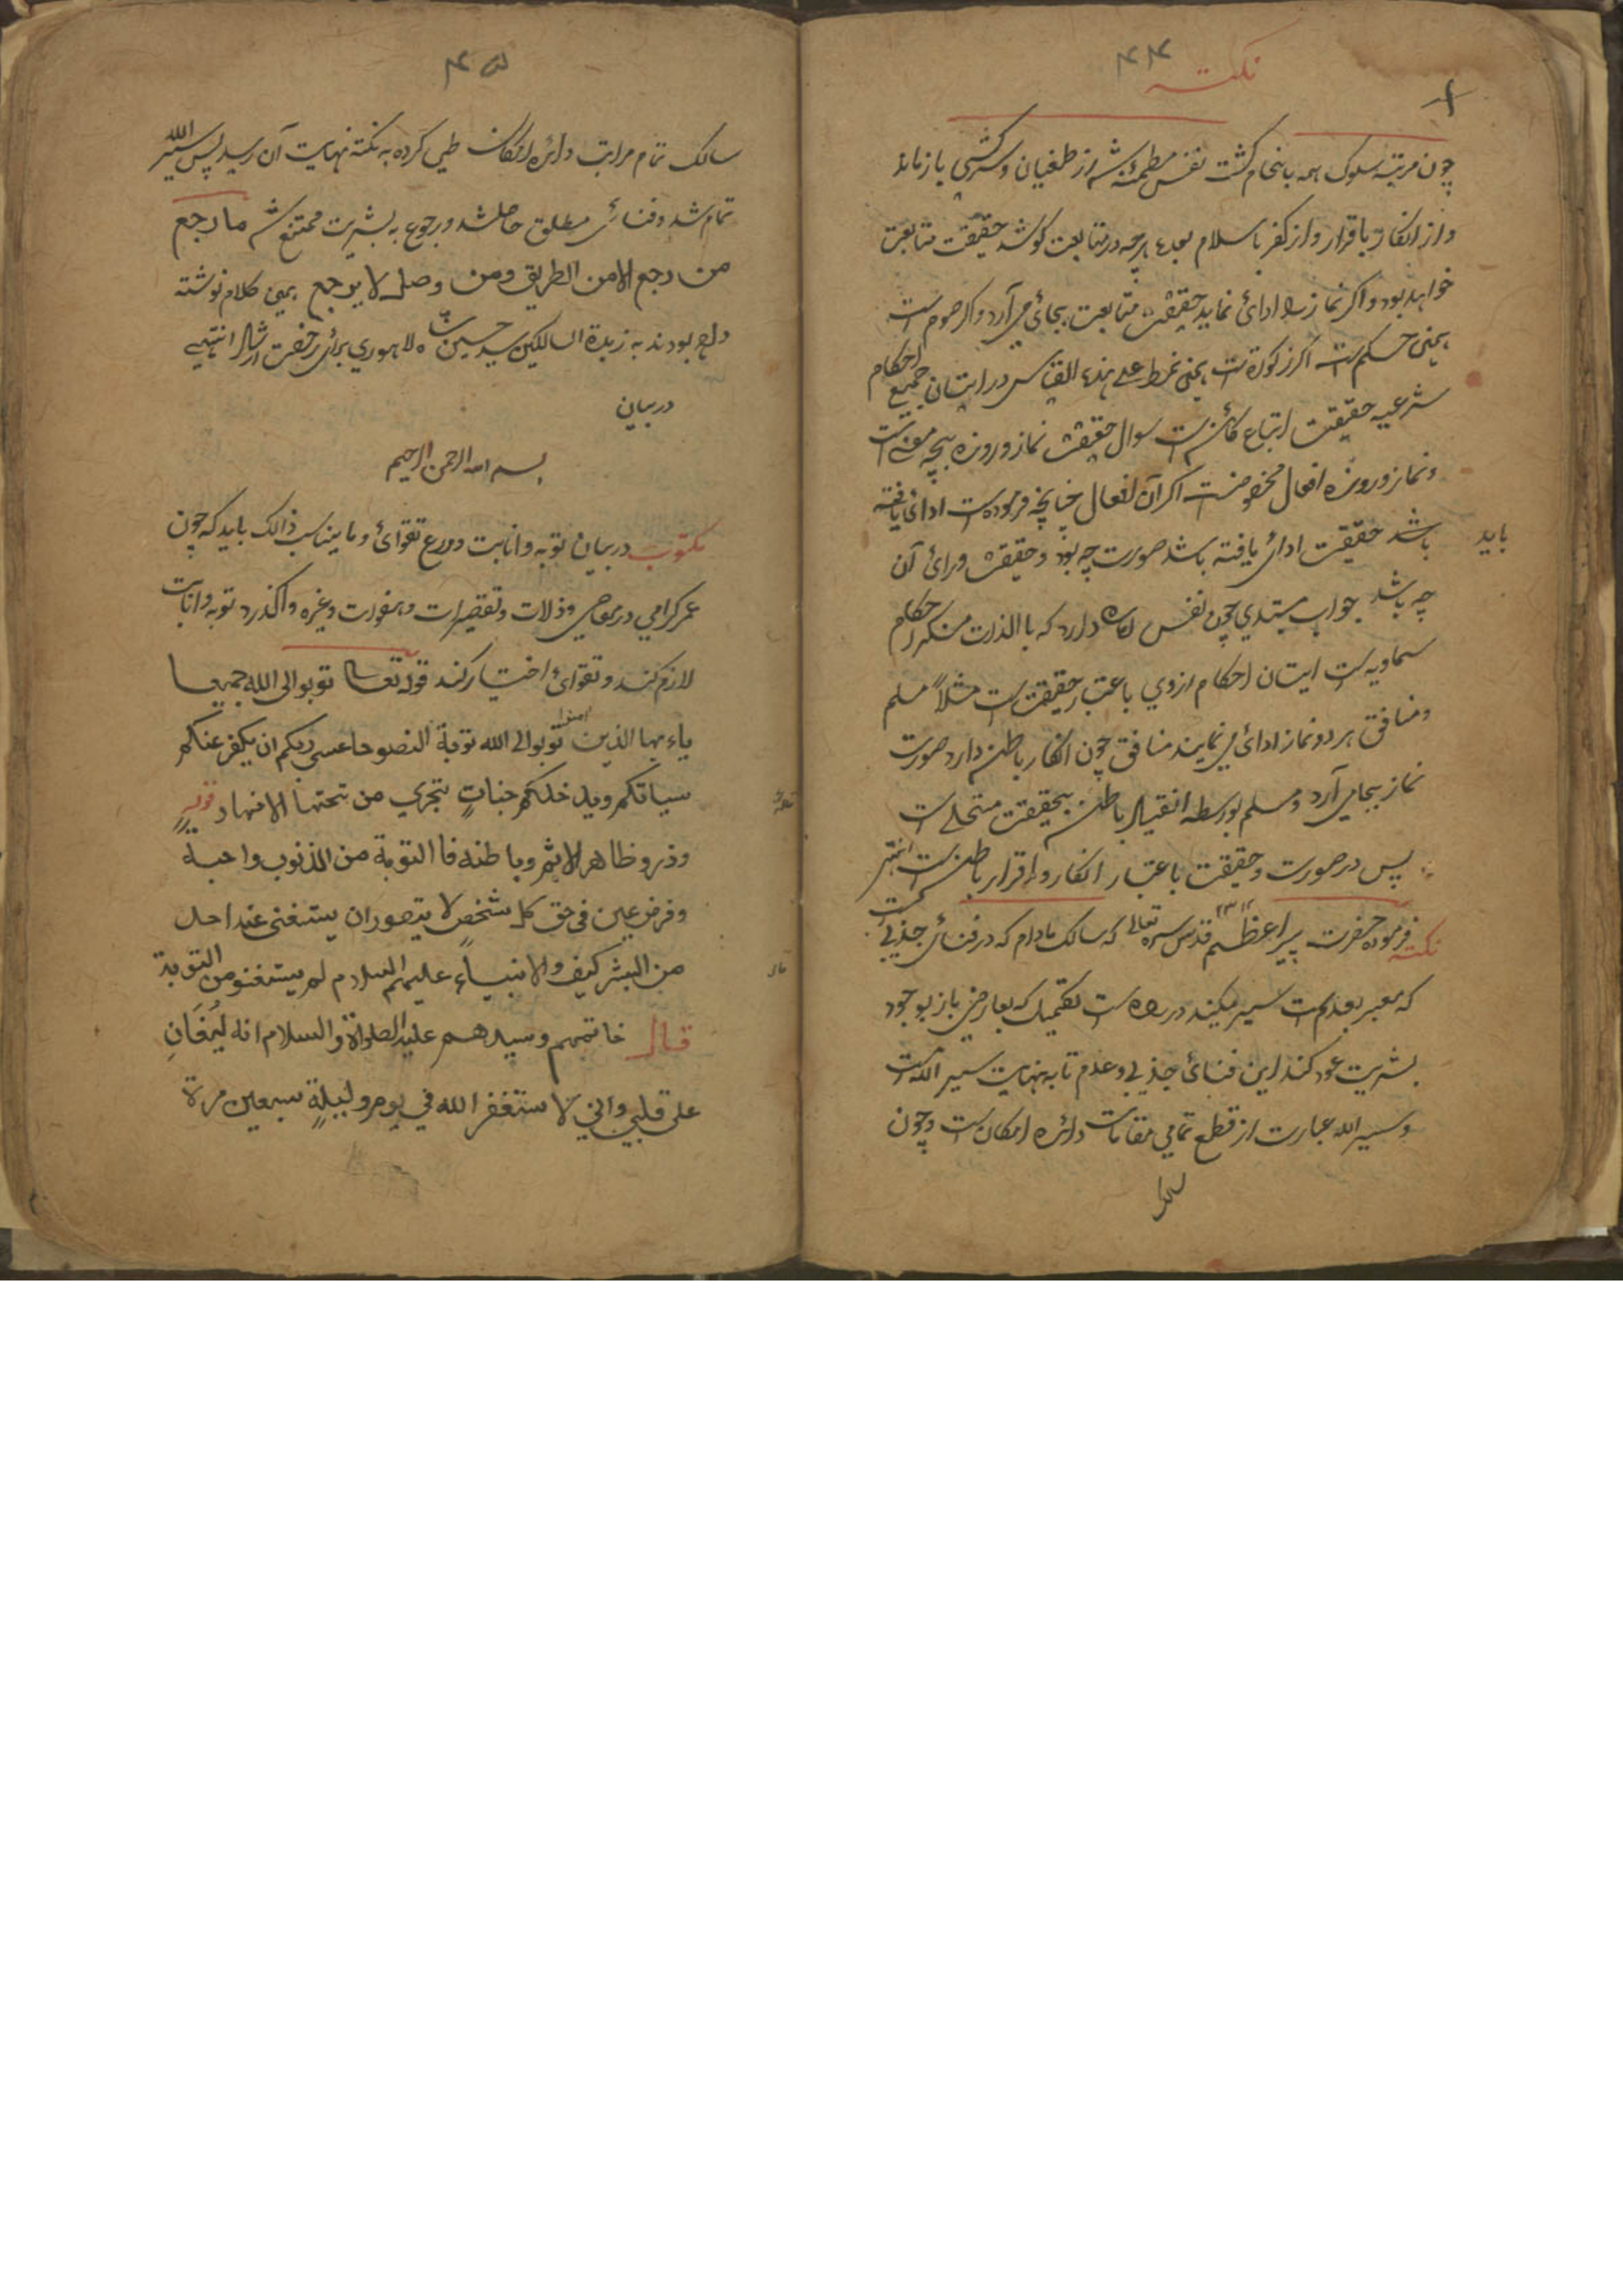 ۴۴
نکته
چون مرتبه سلوک همه بانجام گشت نفس مطمئنه شد از طغیان و سرکشی باز ماند
و از انکار باقرار و از کفر باسلام بعده هرچه در متابعت کوشد حقیقت متابعت
خواهد بود و اکر نماز را ادائ نماید حقیقت متابعت بجائ می آرد و اکر صوم است
همین حکم است اکر زکوة است همین نمط علی هذه القیاس در اتیان جمیع احکام
شرعیه حقیقت اتباع کائن است سوال حقیقت نماز و روزه بچه معنے است
و نماز و روزه افعال مخصوصست اکر آن افعال چنانچه فرموده است ادائ یافته
باشد حقیقت ادائ یافته باشد صورت چه بود و حقیقت ورائ آن
باید
چه باشد جواب مبتدي چون نفس اماره دارد که باالذات منکر احکام
سماویه است اتیان احکام ازوي باعتبار حقیقت است مثلاً مسلم
و منافق هر دو نماز ادائ می نمایند منافق چون انکار باطن دارد صورت
نماز بجا می آرد و مسلم بواسطه انقیاد باطن بحقیقت متحلے است
پس در صورت و حقیقت باعتبار انکار و اقرار باطن است انتهى
نکته فرموده حضرت پیر اعظم قدس سره تعالى که سالک مادام که در فنائ جذبی است
که معبر بعدم است سیر میکند در راه است
بشریت عود کند این فنائ جذبی و عدم تا به نهایت سیر الله است
و سیر الله عبارت از قطع تمامي مقامات دائره امکان است و چون
۴۵
سالک تمام مراتب دائره امکان طی کرده به نکته نهایت آن رسید پس سیر الله
تمام شد و فنائ مطلق حاصل شد و رجوع به بشریت ممتنع شد ما رجع
من رجع الا من الطریق ومن وصل لا یرجع همین کلام نوشته
داده بودند به زبدة السالکین سید حسین شاه لاهوري برائ رخصت ارشاد انتهے
دربیان
بسم الله الرحمن الرحیم
مکتوب در بیان توبه و انابت و ورع تقوائ و ما یناسب ذالک باید که چون
عمر کرامي در معاصي و ذلات و تقصیرات و هفوات و غیره واکذرد توبه و انابت
لازم کند و تقوائ اختیار کند قوله تعالى توبوا الى الله جمیعا
یاءیها الذین امنوا توبوا الى الله توبة النصوحا عسى ربکم ان یکفر عنکم
سیاتکم ویدخلکم جناتٍ تجري من تحتها الانهار
وذروا ظاهر الاثم وباطنه فاالتوبة من الذنوب واجبة
وفرض عین في حق کل شخصٍ لا یتصور ان یستغنی عند احد
من البشر کیف والانبیاء علیهم السلام لم یستغنو من التوبة
قال خاتمهم وسیدهم علیه الصلواة والسلام انه لیُغَانِ
على قلبي واني لاستغفر الله في یوم ولیلةٍ سبعین مرة